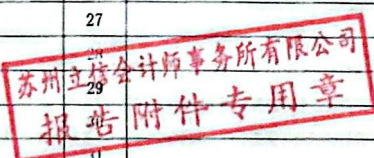 27
28
苏州立信会计师事务所有限公司
29
报告附件专用章